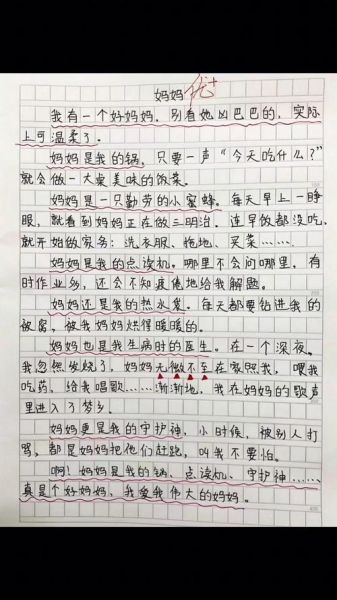 妈妈 优+
我有一个好妈妈。别看她凶巴巴的，实际
上可温柔了。
妈妈是我的锅，只要一声“今天吃什么？”
就会做一大桌美味的饭菜。
妈妈是一只勤劳的小蜜蜂。每天早上一睁
眼，就看到妈妈正在做三明治。连早饭都没吃，
就开始做家务：洗衣服、拖地、买菜……
妈妈是我的点读机。哪里不会问哪里，有
时作业多，还会不知疲倦地给我解题。
妈妈还是我的热水袋。每天都要钻进我的
被窝，被我妈妈烘得暖暖的。
妈妈也是我生病时的医生。在一个深夜，
我忽然发烧了，妈妈无微不至在照顾我，喂我
吃药，给我唱歌……渐渐地，我在妈妈的歌声
里进入了梦乡。
妈妈更是我的守护神，小时候，被别人打
骂，都是妈妈把他们赶跑，叫我不要怕。
啊！妈妈是我的锅、点读机、守护神……
真是个好妈妈，我爱我伟大的妈妈。